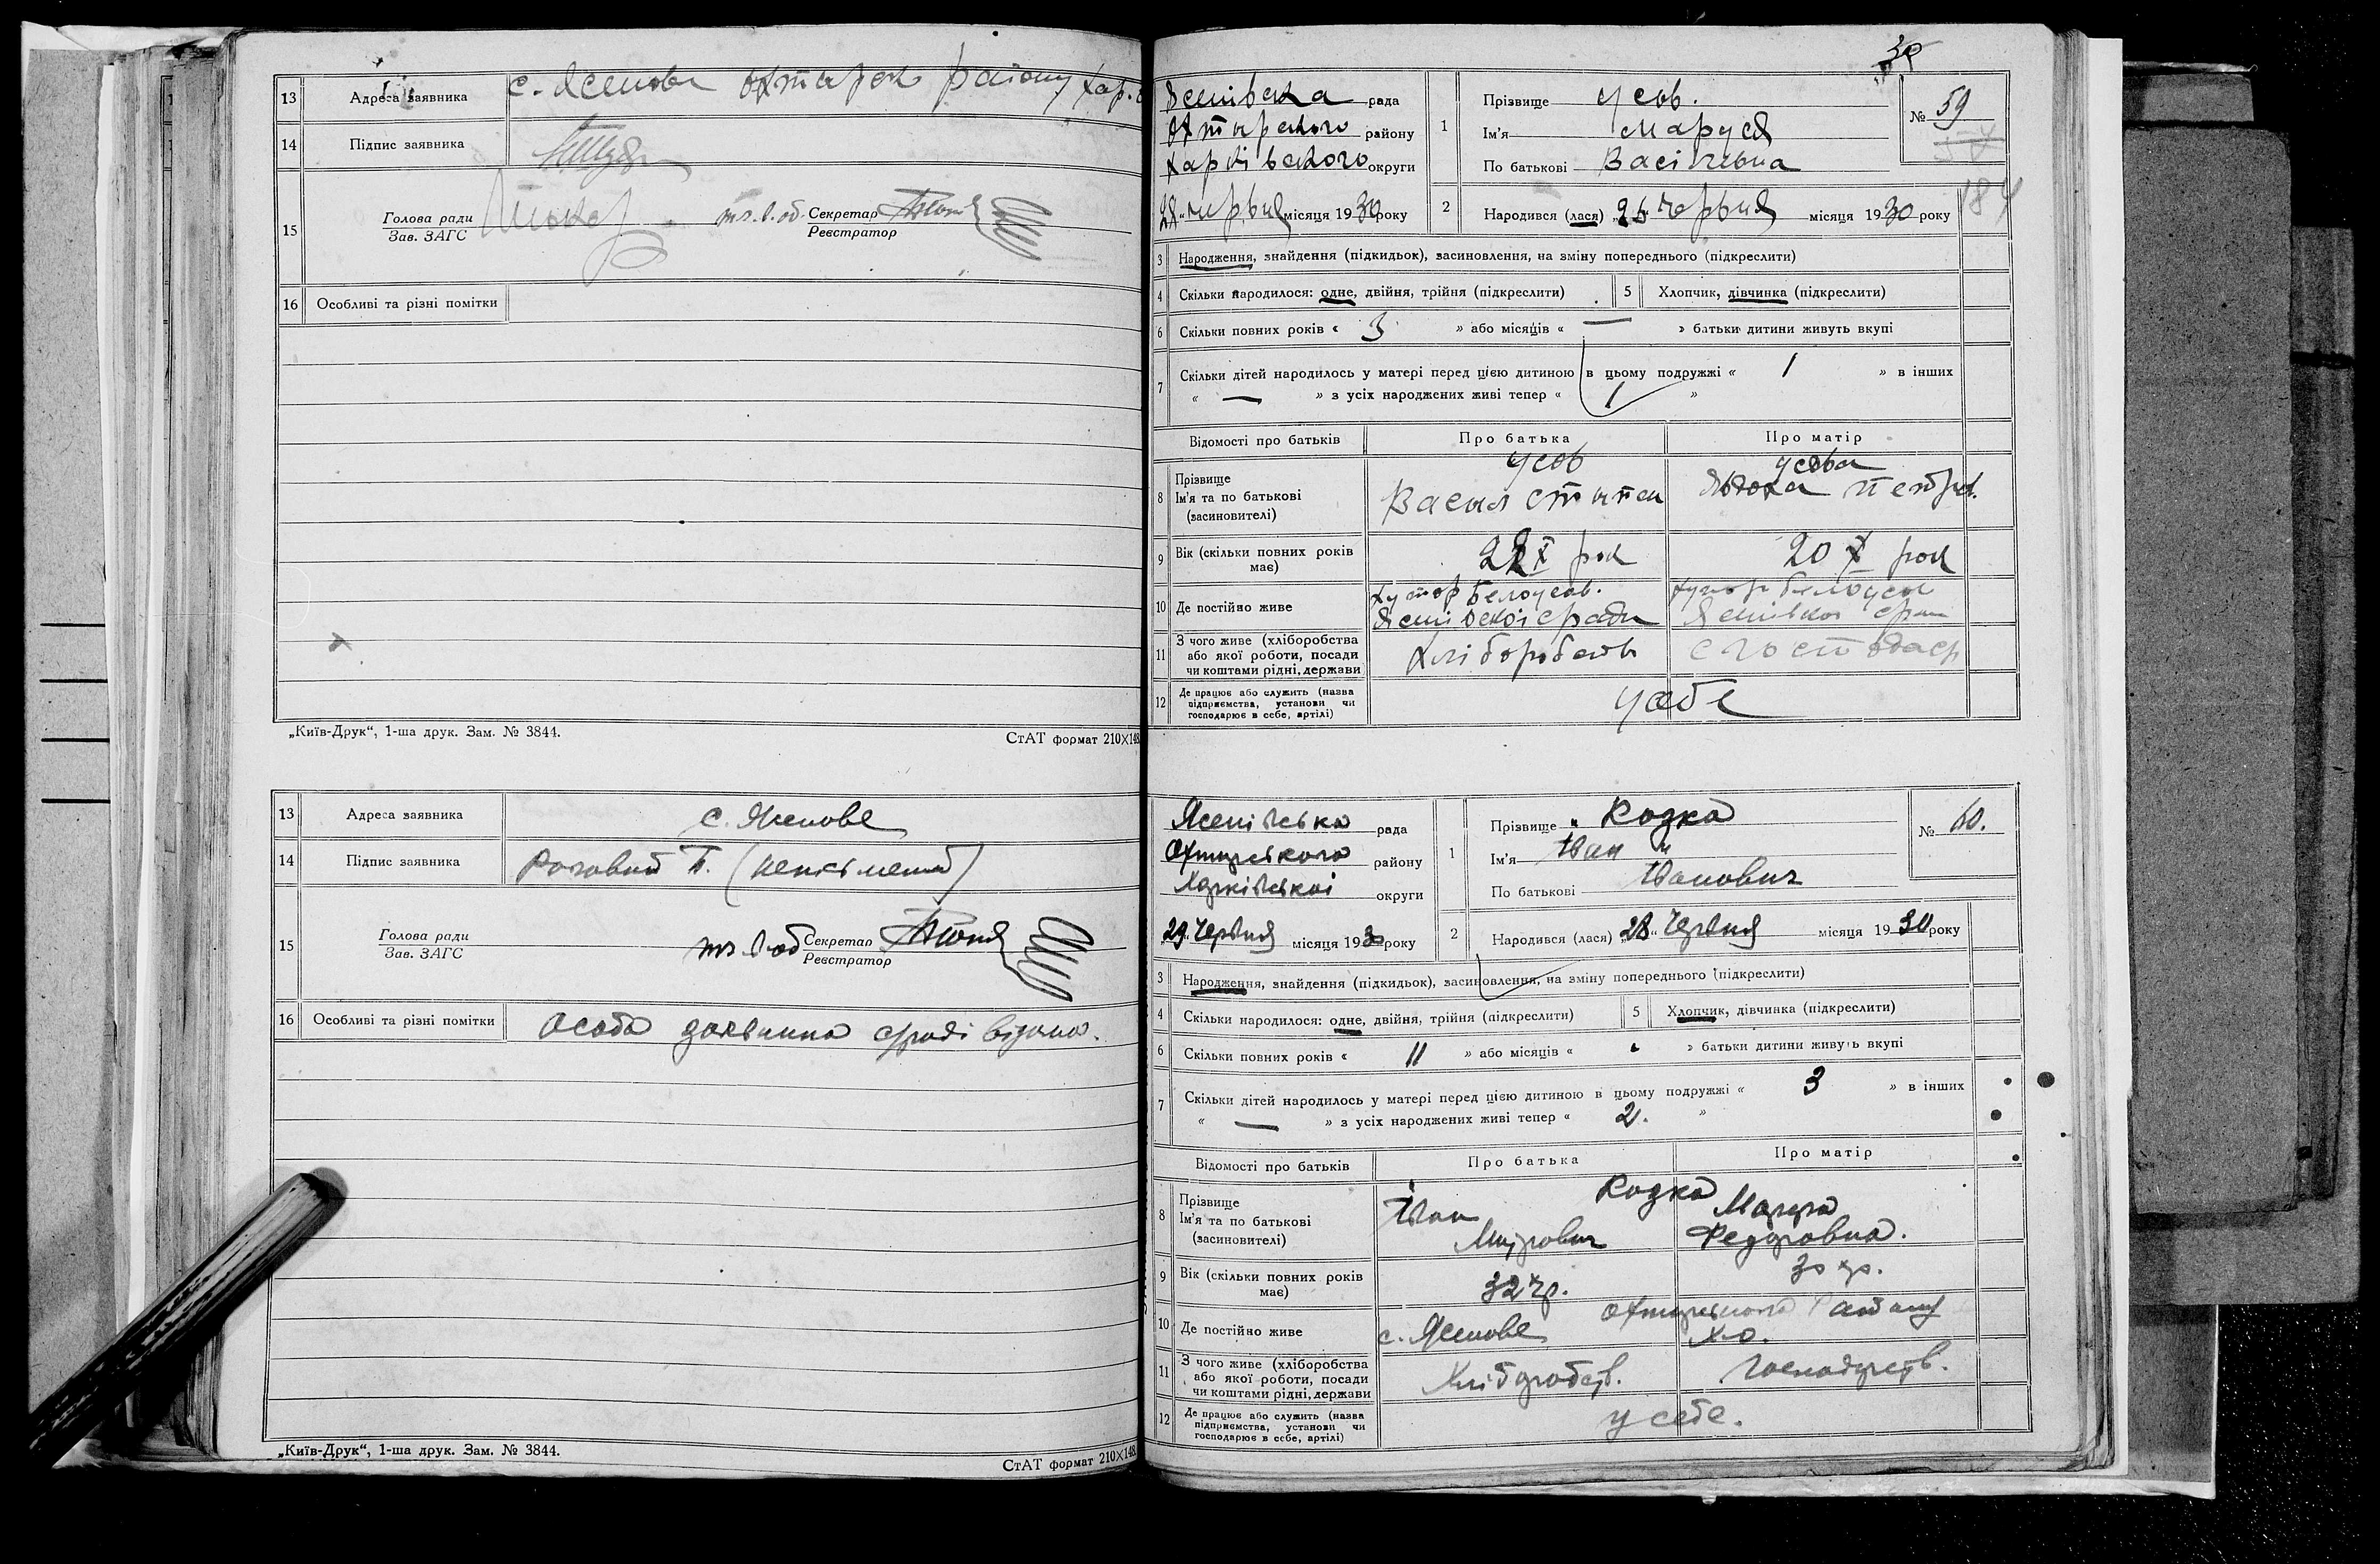 13 Адреса заявника с. Ясенове Охтирск району Хар.
14 Підпис заявника
15 Голова ради Зав. ЗАГС тз. в. об. Секретар Реєстратор
16 Особливі та різні помітки
„Київ-Друк“, 1-ша друк. Зам. № 3844. СтАТ формат 210X148
13 Адреса заявника с. Ясенове
14 Підпис заявника Роговий Т. (неписьмений)
15 Голова ради Зав. ЗАГС Секретар Реєстратор
16 Особливі та різні помітки Особа заявника сраді відома.
„Київ-Друк“, 1-ша друк. Зам. № 3844. СтАТ формат 210X148
Ясенівська рада
Охтирского району
Харківського округи
28 червня місяця 1930 року
1 Прізвище Усов.
Ім'я Маруся
По батькові Васілівна
№ 59
184
2 Народився (лася) „26“ червня місяця 1930 року
3 Народження, знайдення (підкидьок), засиновлення, на зміну попереднього (підкреслити)
4 Скільки народилося: одне, двійня, трійня (підкреслити) 5 Хлопчик, дівчинка (підкреслити)
6 Скільки повних років « 3 » або місяців « — » батьки дитини живуть вкупі
7 Скільки дітей народилось у матері перед цією дитиною в цьому подружжі « 1 » в інших
« — » з усіх народжених живі тепер « 1 »
Відомості про батьків Про батька Про матір
8 Прізвище Ім'я та по батькові (засиновителі) Усов Васил Степан Усова Явдоха Петров.
9 Вік (скільки повних років має) 22 рок 20 рок
10 Де постійно живе хутор Белоусов. Ясенівскої сради хутор Белоусов Ясенівкої сради
11 З чого живе (хліборобства або якої роботи, посади чи коштами рідні, держави хліборобств сгосподар
12 Де працює або служить (назва підприємства, установи чи господарює в себе, артілі) усебе
Ясенівська рада
Охтирського району
Харківської округи
„29“ Червня місяця 1930 року
1 Прізвище Кодка
Ім'я Іван
По батькові Іванович
№ 60.
2 Народився (лася) „28“ Червня місяця 1930 року
3 Народження, знайдення (підкидьок), засиновлення, на зміну попереднього (підкреслити)
4 Скільки народилося: одне, двійня, трійня (підкреслити) 5 Хлопчик, дівчинка (підкреслити)
6 Скільки повних років « 11 » або місяців « » батьки дитини живуть вкупі
7 Скільки дітей народилось у матері перед цією дитиною в цьому подружжі « 3 » в інших
« — » з усіх народжених живі тепер « 2. »
Відомості про батьків Про батька Про матір
8 Прізвище Ім'я та по батькові (засиновителі) Кодка Іван Марфа Федоровна.
9 Вік (скільки повних років має) 32 р. 30 р.
10 Де постійно живе с. Ясенове Охтирського Району Х.О.
11 З чого живе (хліборобства або якої роботи, посади чи коштами рідні, держави Хліборобств. Господарств.
12 Де працює або служить (назва підприємства, установи чи господарює в себе, артілі) у себе.